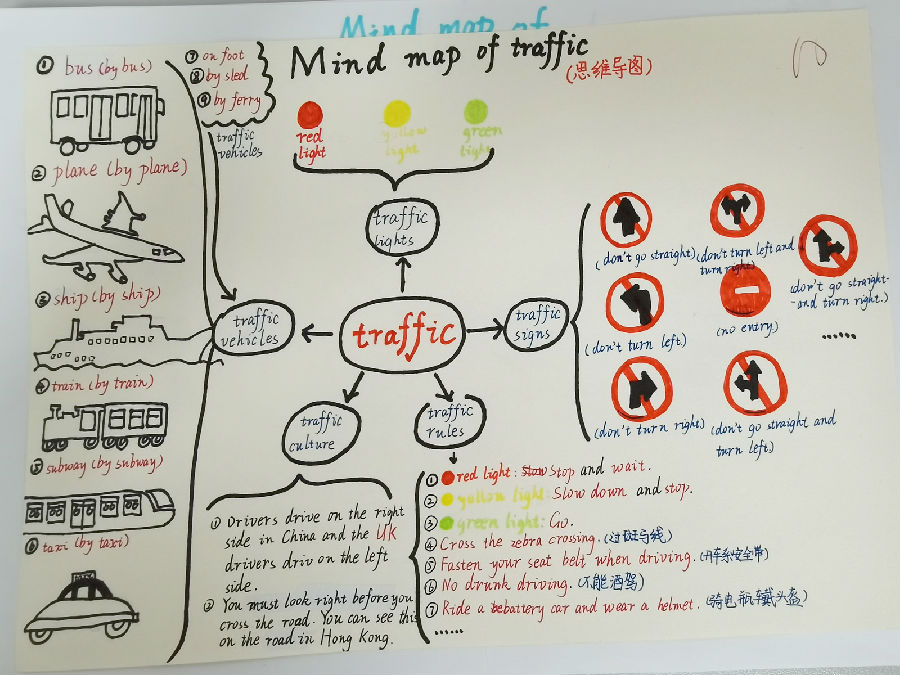 Mind map of
Mind map of traffic
(思维导图)
① bus (by bus)
② plane (by plane)
③ ship (by ship)
④ train (by train)
⑤ subway (by subway)
⑥ taxi (by taxi)
TAXI
⑦ on foot
⑧ by sled
⑨ by ferry
traffic
vehicles
red
light
yellow
light
green
light
traffic
lights
traffic
vehicles
traffic
traffic
signs
traffic
culture
traffic
rules
(don't go straight)
(don't turn left and
turn right)
(don't go straight
and turn right.)
(don't turn left)
(no entry)
......
(don't turn right)
(don't go straight and
turn left)
① Drivers drive on the right
side in China and the UK
drivers driv on the left
side.
② You must look right before you
cross the road. You can see this
on the road in Hong Kong.
① red light: Slow Stop and wait.
② yellow light: Slow down and stop.
③ green light: Go.
④ Cross the zebra crossing. (过斑马线)
⑤ Fasten your seat belt when driving. (开车系安全带)
⑥ No drunk driving. (不能酒驾)
⑦ Ride a battery car and wear a helmet. (骑电瓶车戴头盔)
......